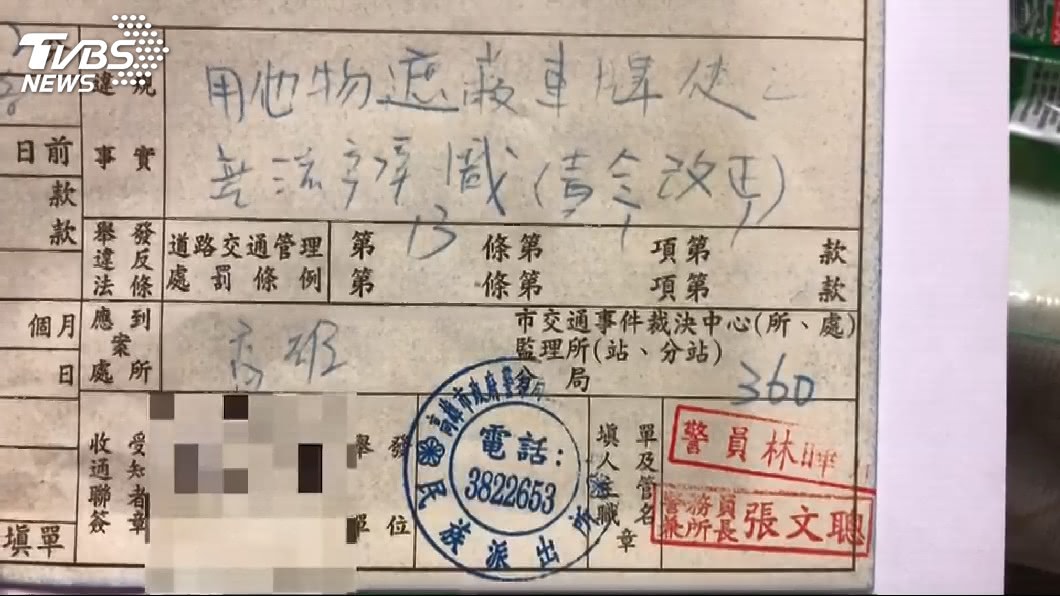 TVBS
NEWS
違規
事實
用他物遮蔽車牌使之
無法辨識(責令改正)
日前
款
款
舉發
違反
法條
道路交通管理
處罰條例
第 13 條第 1 項第 1 款
第 條第 項第 款
個月
日
應到
案
處所
市交通事件裁決中心(所、處)
監理所(站、分站)
分局
360
收受
通知
聯者
簽章
舉發
單位
高雄市政府警察局
電話:
3822653
民族派出所
填單
人及
主管
職名
章
警員林
警務員
兼所長張文聰
填單